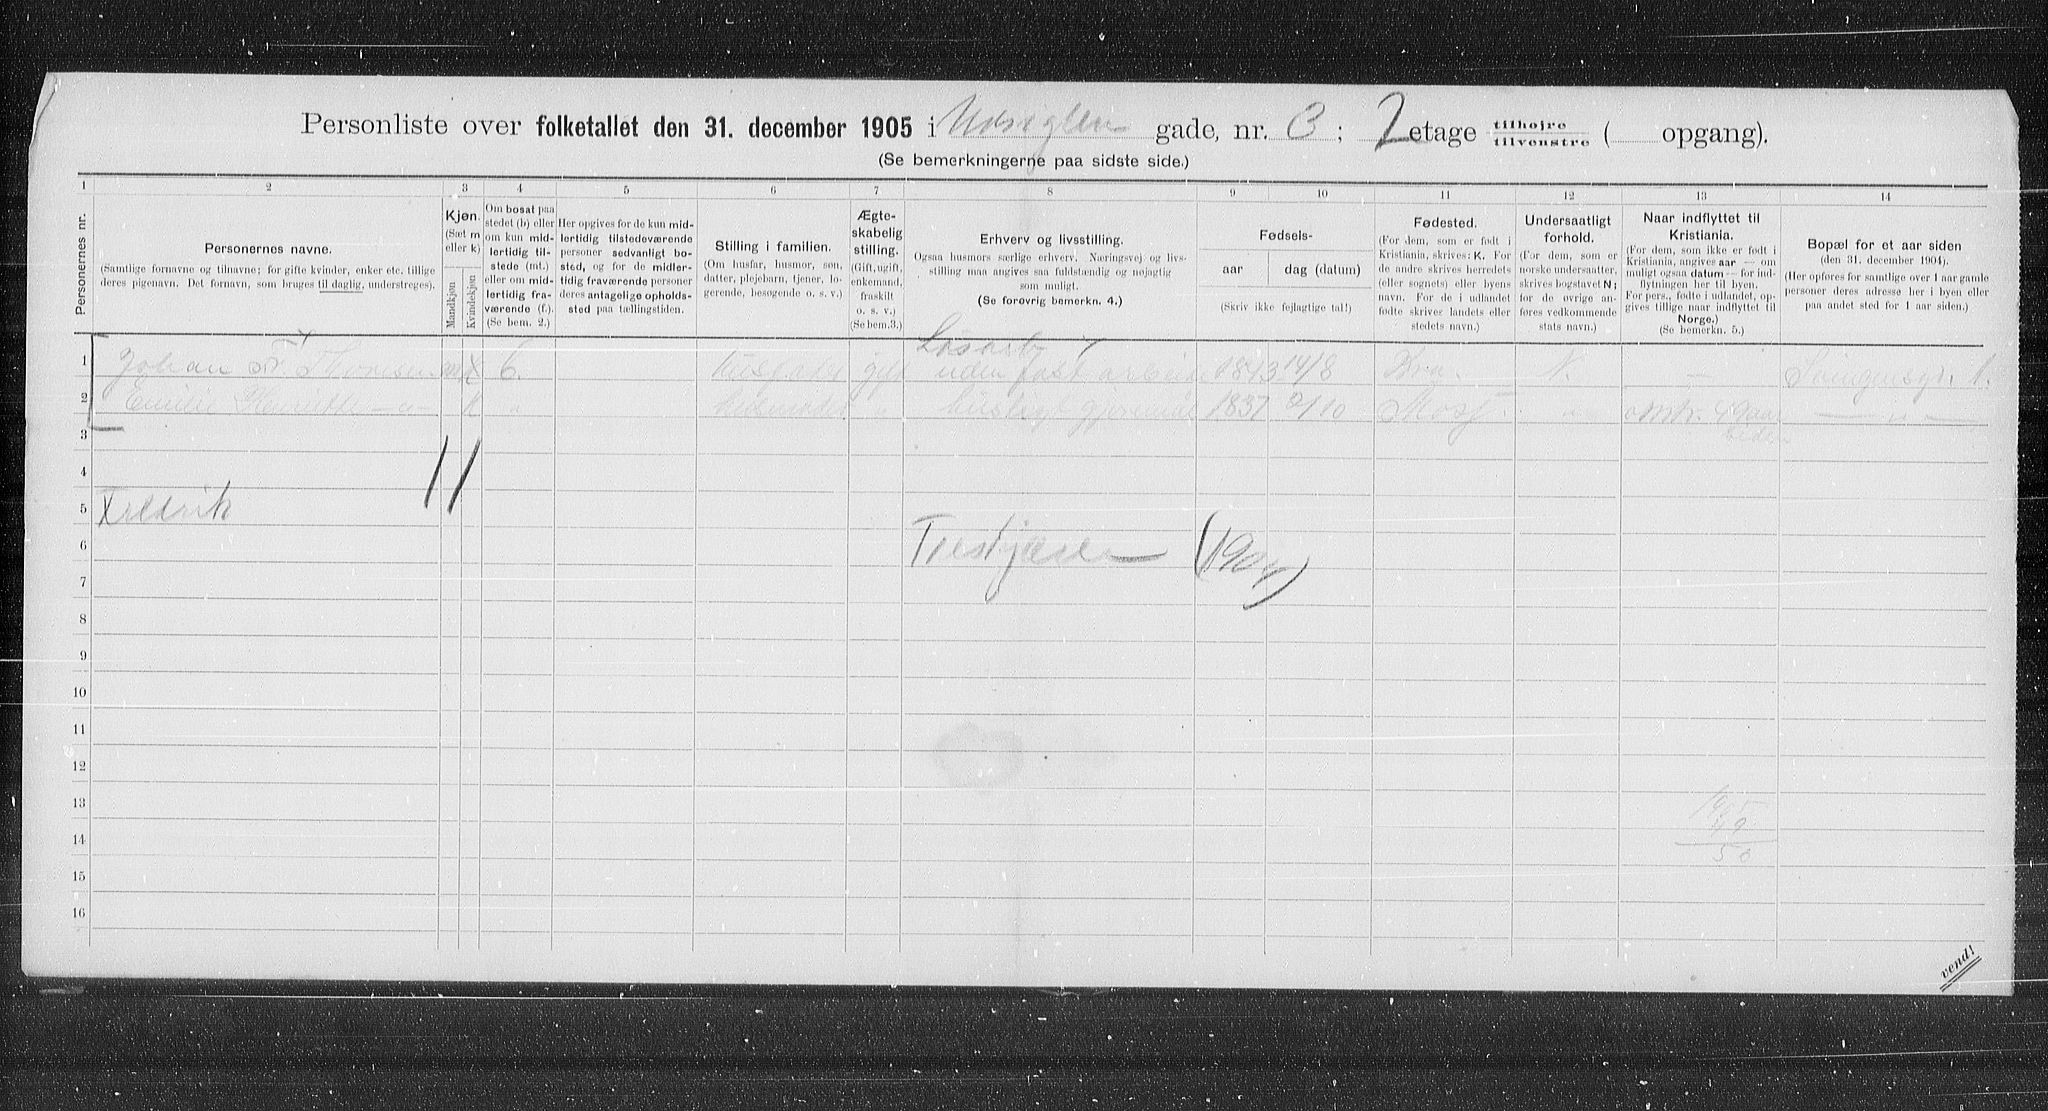 Personliste over folketallet den 31. december 1905 i Udsigten gade, nr. 3; 2 etage tilhøjre tilvenstre ( opgang).
(Se bemerkningerne paa sidste side.)
1 2 3 4 5 6 7 8 9 10 11 12 13 14
Personernes nr.
Personernes navne.
(Samtlige fornavne og tilnavne; for gifte kvinder, enker etc. tillige deres pigenavn. Det fornavn, som bruges til daglig, understreges).
Kjøn.
(Sæt m eller k)
Mandkjøn
Kvindekjøn
Om bosat paa stedet (b) eller om kun midlertidig tilstede (mt.) eller om midlertidig fraværende (f.).
(Se bem. 2.)
Her opgives for de kun midlertidig tilstedeværende personer sedvanligt bosted, og for de midlertidig fraværende personer deres antagelige opholdssted paa tællingstiden.
Stilling i familien.
(Om husfar, husmor, søn, datter, plejebarn, tjener, logerende, besøgende o. s. v.)
Ægteskabelig stilling.
(Gift, ugift, enkemand, fraskilt o. s. v.)
(Se bem. 3.)
Erhverv og livsstilling.
Ogsaa husmors særlige erhverv. Næringsvej og livsstilling maa angives saa fuldstændig og nøjagtig som muligt.
(Se forøvrig bemerkn. 4.)
Fødsels-
aar dag (datum)
(Skriv ikke fejlagtige tal!)
Fødested.
(For dem, som er født i Kristiania, skrives: K. For de andre skrives herredets (eller sognets) eller byens navn. For de i udlandet fødte skriver landets eller stedets navn.)
Undersaatligt forhold.
(For dem, som er norske undersaatter, skrives bogstavet N; for de øvrige anføres vedkommende stats navn.)
Naar indflyttet til Kristiania.
(For dem, som ikke er født i Kristiania, angives aar — om muligt ogsaa datum — for indflytningen her til byen. For pers., fødte i udlandet, opgives tillige naar indflyttet til Norge.)
(Se bemerkn. 5.)
Bopæl for et aar siden
(den 31. december 1904).
(Her opføres for samtlige over 1 aar gamle personer deres adresse her i byen eller paa andet sted for 1 aar siden.)
Løsarb.
1 Johan F. m husfader gift uden fast 1843 14/8 Kra. N. —
2 Emilie Henriette —„— k „ husmoder „ husligt 1837 2/10 Moss „ 49 aar — „ —
siden
3
4
11
5 Fredrik
6 (1904)
7
8
9
10
11
12
13
14
15
16
vend!